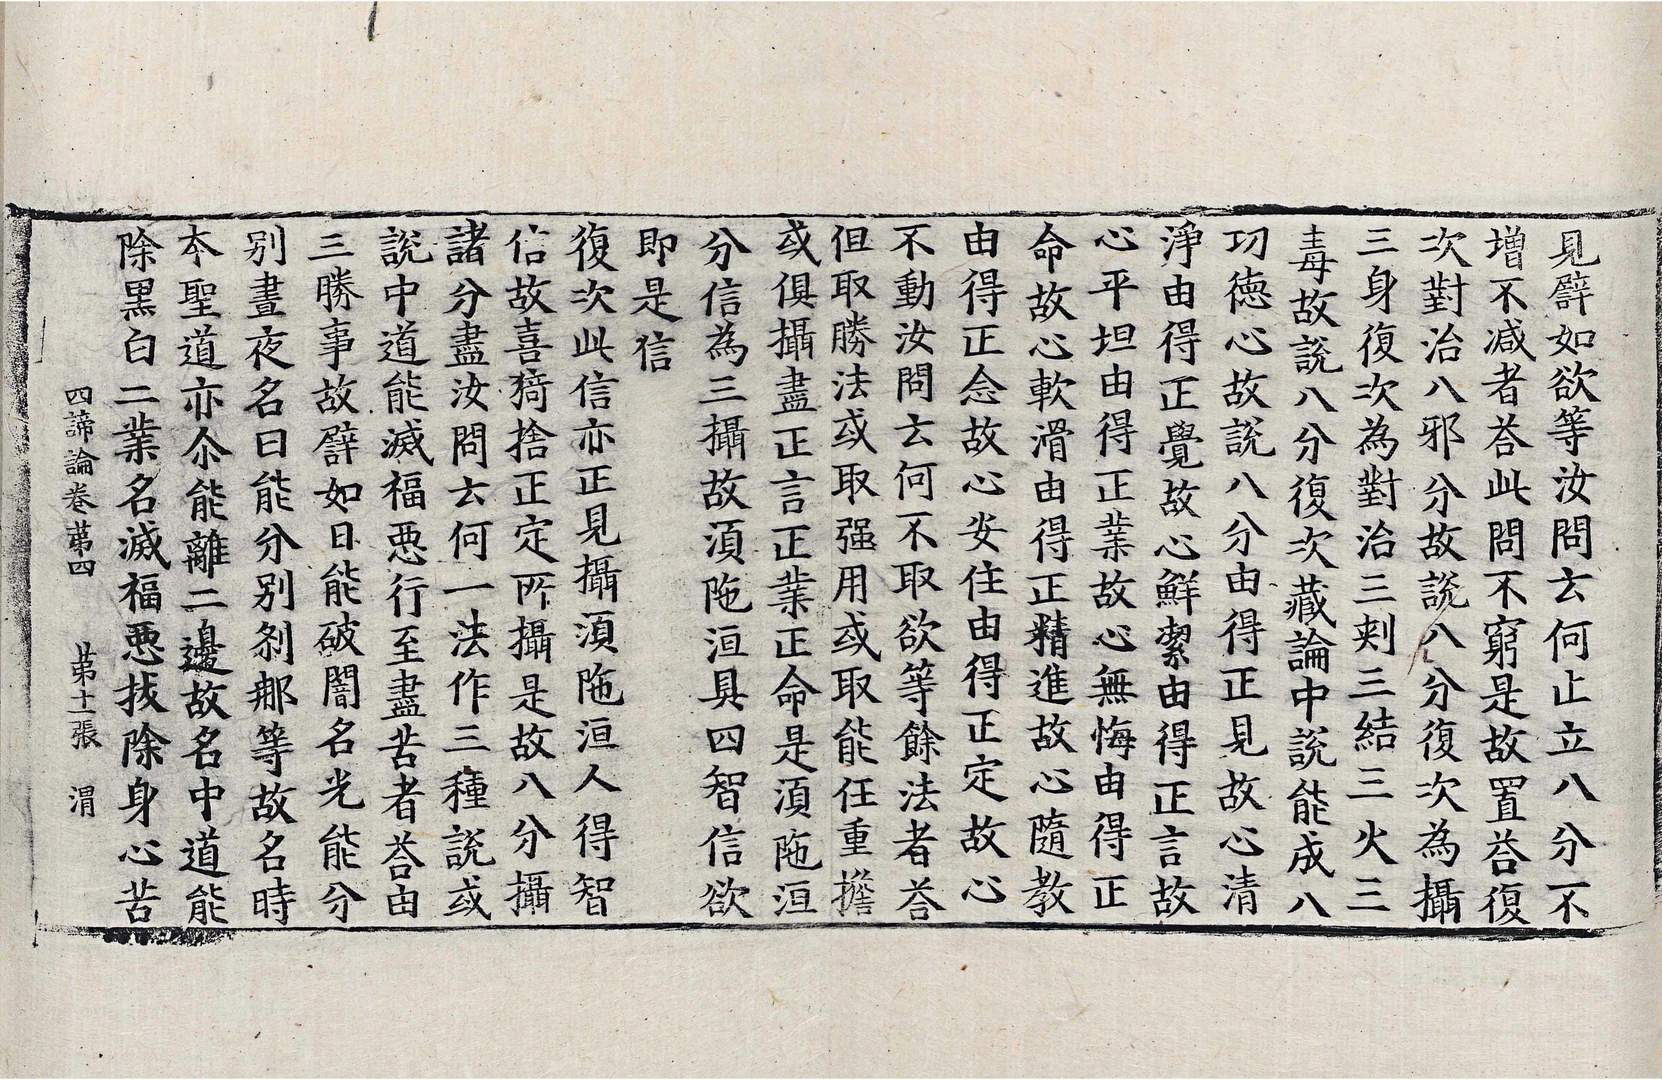 見譬如欲等汝問云何止立八分不
增不減者荅此問不窮是故置荅復
次對治八邪分故說八分復次為攝
三身復次為對治三刺三結三火三
毒故說八分復次藏論中說能成八
功德心故說八分由得正見故心清
淨由得正覺故心鮮潔由得正言故
心平坦由得正業故心無悔由得正
命故心軟滑由得正精進故心隨教
由得正念故心安住由得正定故心
不動汝問云何不取欲等餘法者荅
但取勝法或取强用或取能任重擔
或俱攝盡正言正業正命是湏陁洹
分信為三攝故湏陁洹具四智信欲
即是信
復次此信亦正見攝湏陁洹人得智
信故喜猗捨正定所攝是故八分攝
諸分盡汝問云何一法作三種說或
說中道能滅福惡行至盡苦者荅由
三勝事故譬如日能破闇名光能分
別晝夜名日能分別剎那等故名時
夲聖道亦尒能離二邊故名中道能
除黑白二業名滅福惡拔除身心苦
四諦論卷苐四　苐十一張　渭